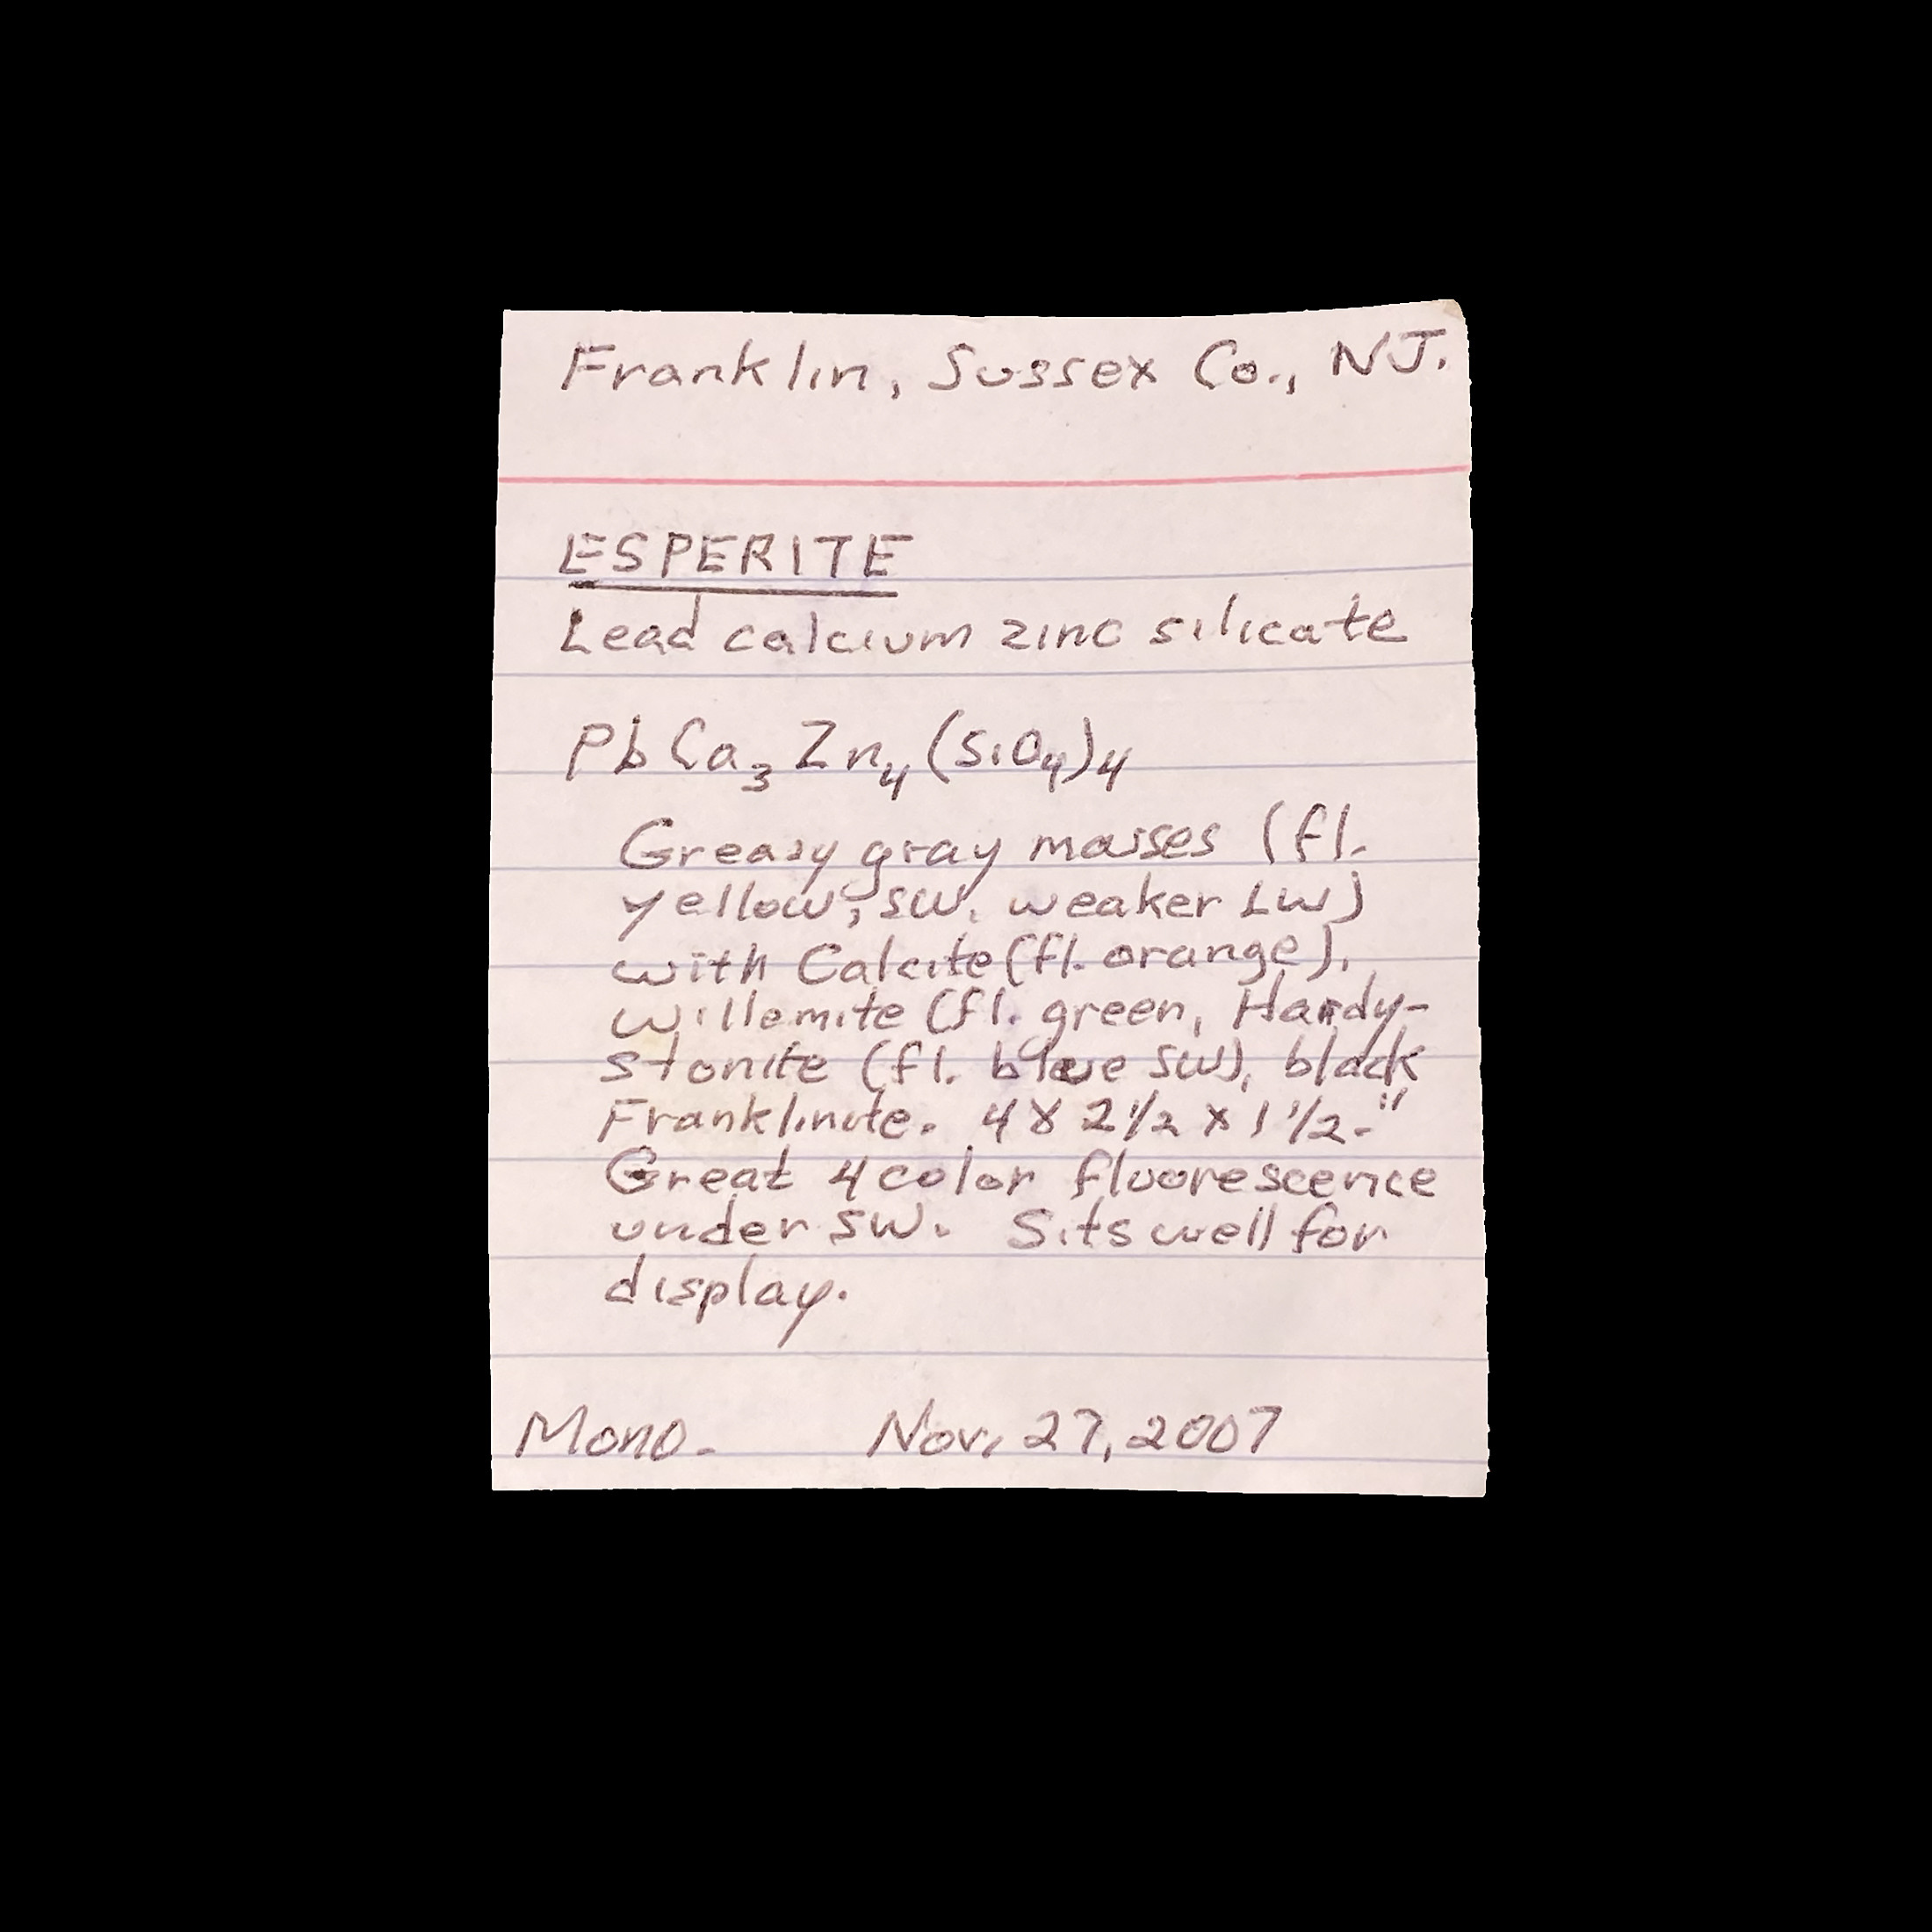 Franklin, Sussex Co., NJ.
ESPERITE
Lead calcium zinc silicate
PbCa₃Zn₄(SiO₄)₄
Greasy gray masses (fl.
yellow, SW. weaker LW)
with Calcite (fl. orange),
Willemite (fl. green, Hardy-
stonite (fl. blue SW), black
Franklinite. 4 x 2 1/2 x 1 1/2-"
Great 4 color fluorescence
under SW. Sits well for
display.
Mono. Nov. 27, 2007